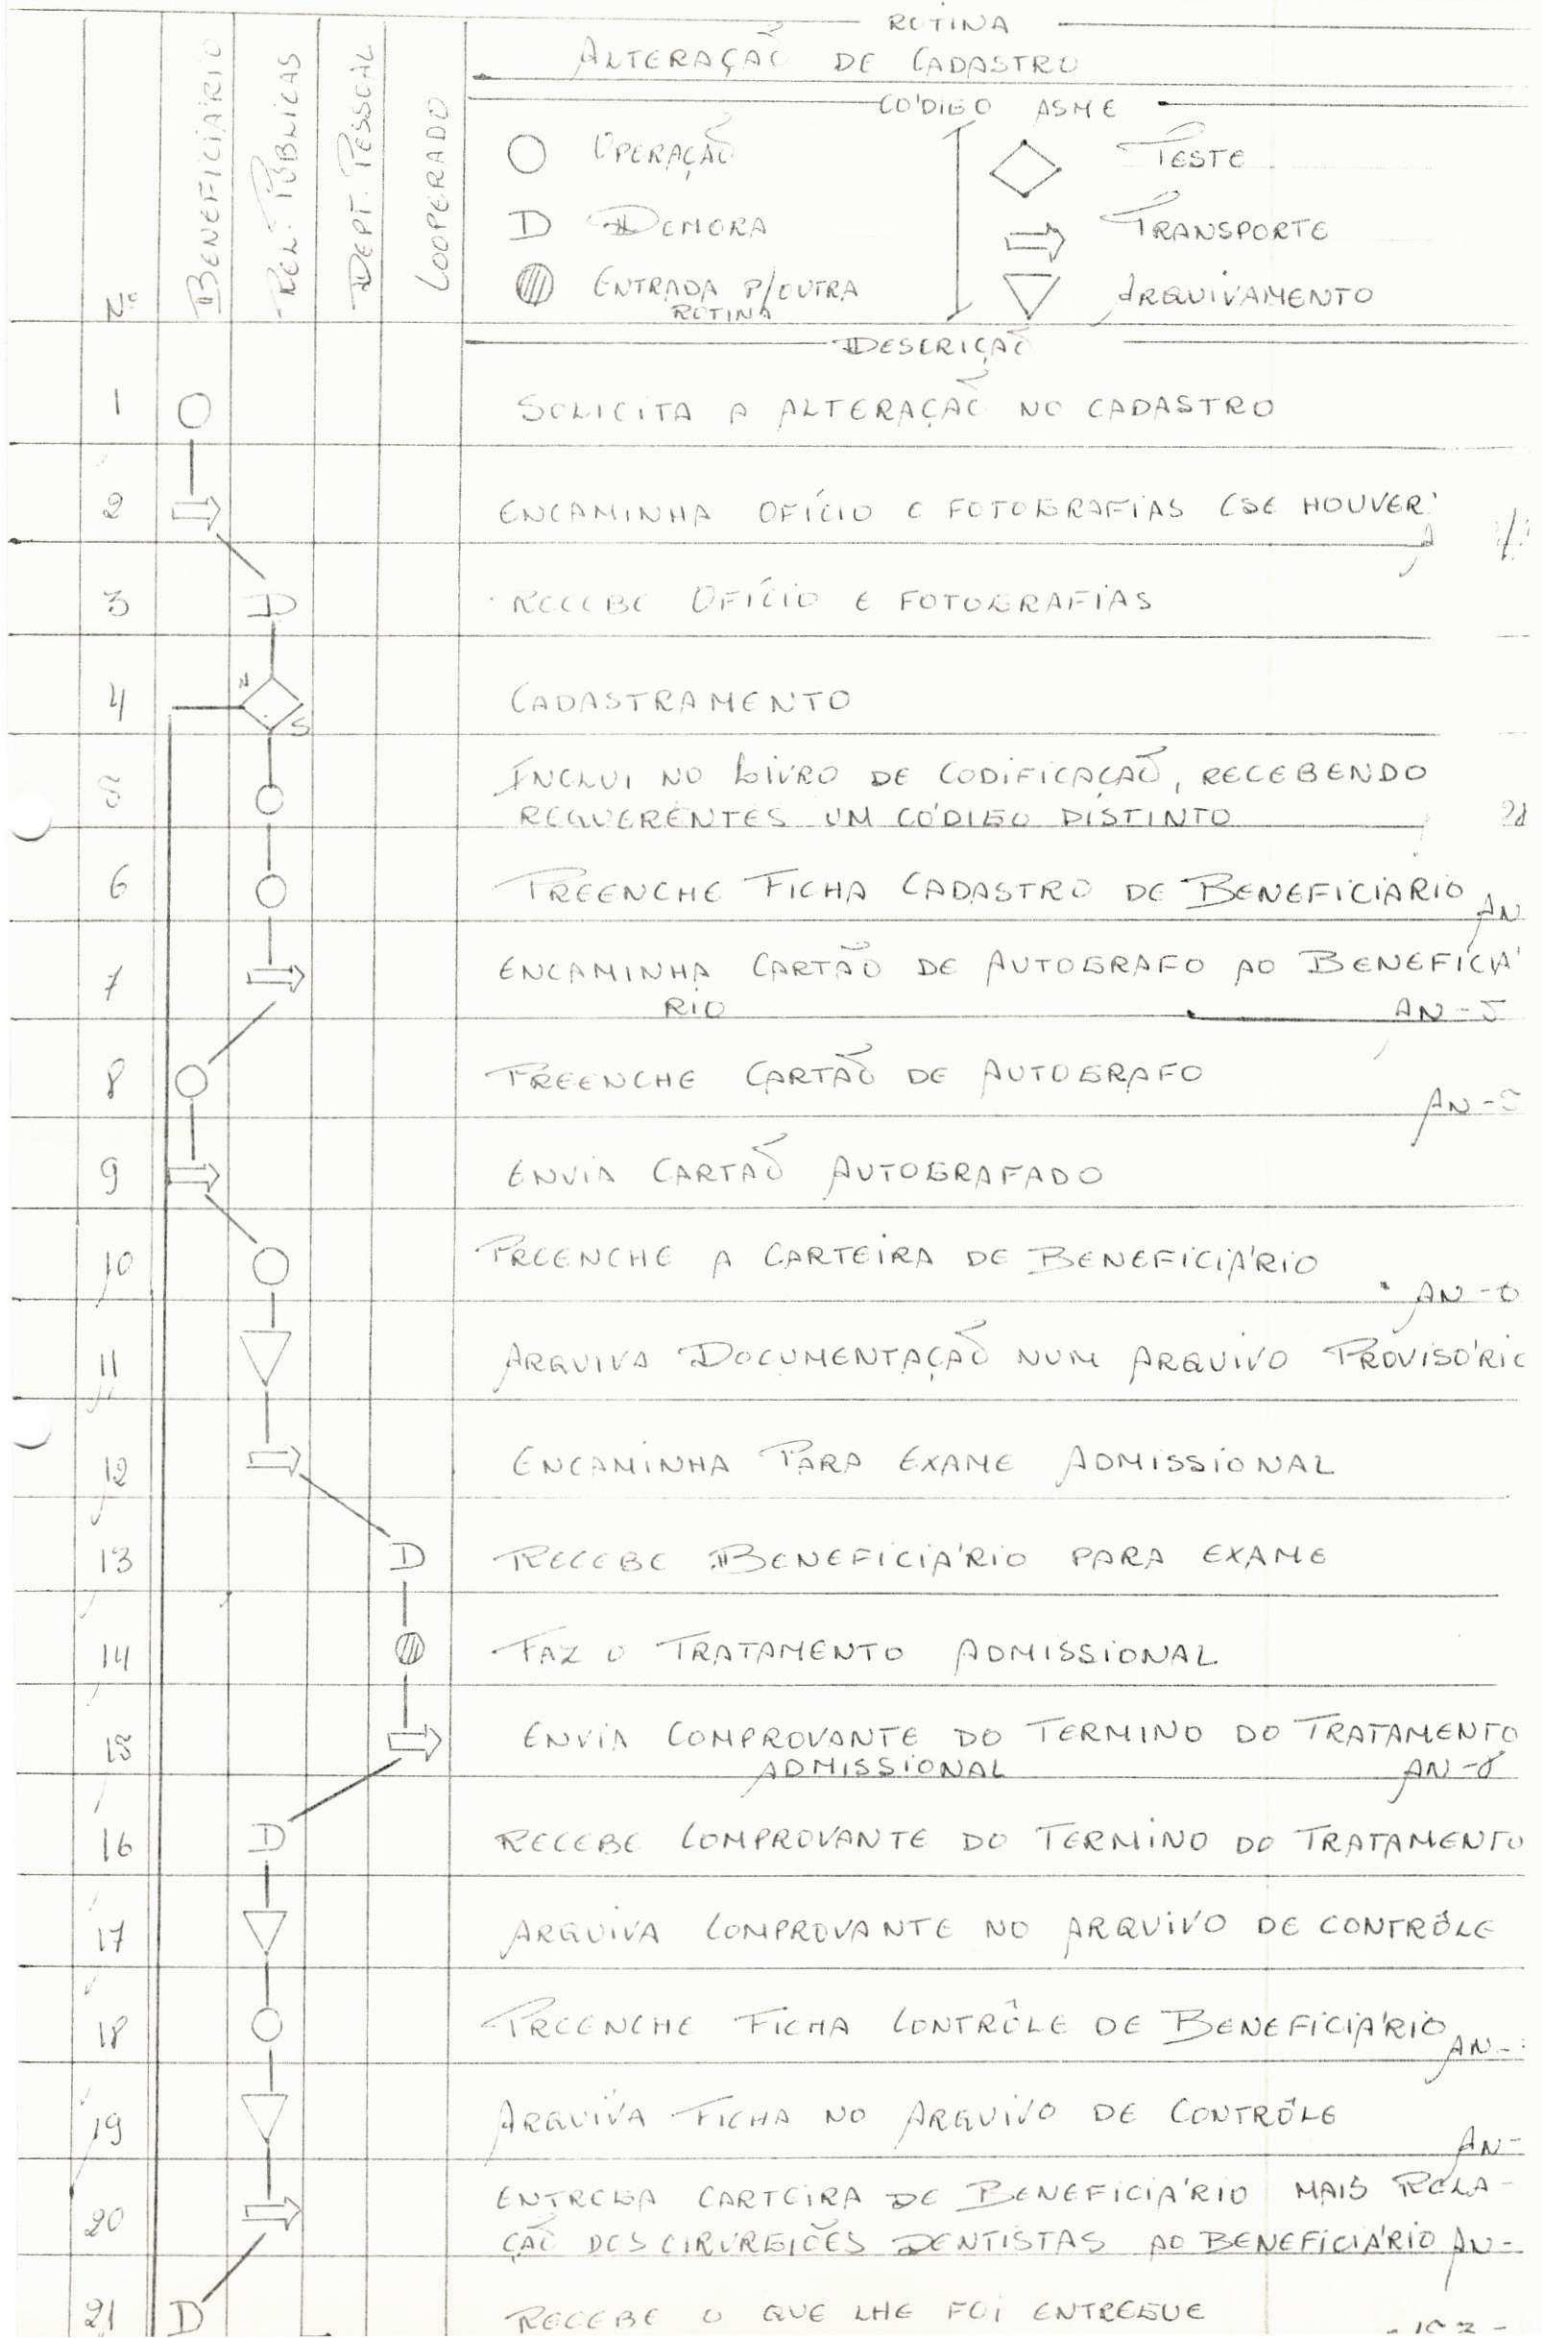 ROTINA
ALTERAÇÃO DE CADASTRO
CÓDIGO ASME
Nº
BENEFICIÁRIO
REL. PÚBLICAS
DEPT. PESSOAL
COOPERADO
OPERAÇÃO
TESTE
DEMORA
TRANSPORTE
ENTRADA P/OUTRA
ROTINA
ARQUIVAMENTO
DESCRIÇÃO
1 SOLICITA A ALTERAÇÃO NO CADASTRO
2 ENCAMINHA OFÍCIO E FOTOGRAFIAS (SE HOUVER
3 D RECEBE OFÍCIO E FOTOGRAFIAS
4 N S CADASTRAMENTO
5 INCLUI NO LIVRO DE CODIFICAÇÃO, RECEBENDO
REQUERENTES UM CÓDIGO DISTINTO
6 PREENCHE FICHA CADASTRO DE BENEFICIARIO AN
7 ENCAMINHA CARTÃO DE AUTOGRAFO AO BENEFICIÁ
RIO AN-5
8 PREENCHE CARTÃO DE AUTOGRAFO
AN-
9 ENVIA CARTÃO AUTOGRAFADO
10 PREENCHE A CARTEIRA DE BENEFICIÁRIO
AN-6
11 ARQUIVA DOCUMENTAÇÃO NUM ARQUIVO PROVISÓRIO
12 ENCAMINHA PARA EXAME ADMISSIONAL
13 D RECEBE BENEFICIÁRIO PARA EXAME
14 FAZ O TRATAMENTO ADMISSIONAL
15 ENVIA COMPROVANTE DO TERMINO DO TRATAMENTO
ADMISSIONAL AN-8
16 D RECEBE COMPROVANTE DO TERMINO DO TRATAMENTO
17 ARQUIVA COMPROVANTE NO ARQUIVO DE CONTRÔLE
18 PREENCHE FICHA CONTRÔLE DE BENEFICIÁRIO
AN-
19 ARQUIVA FICHA NO ARQUIVO DE CONTRÔLE
AN-
20 ENTREGA CARTEIRA DE BENEFICIÁRIO MAIS RELA-
ÇÃO DOS CIRURGIÕES DENTISTAS AO BENEFICIÁRIO AN-
21 D RECEBE O QUE LHE FOI ENTREGUE